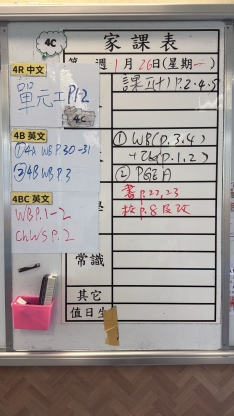 4C
家課表
第 週 1月26日(星期一)
4R 中文
單元工P.12
4C
課工(十) P.2-4,5
4B 英文
①4A WB P.30-31
②4B WB P.3
① WB(P.3,4)
P.1,2)
②
4BC 英文
WB P.1-2
Ch WS P.2
書P.22,23
P.8 反改
常識
其它
值日生